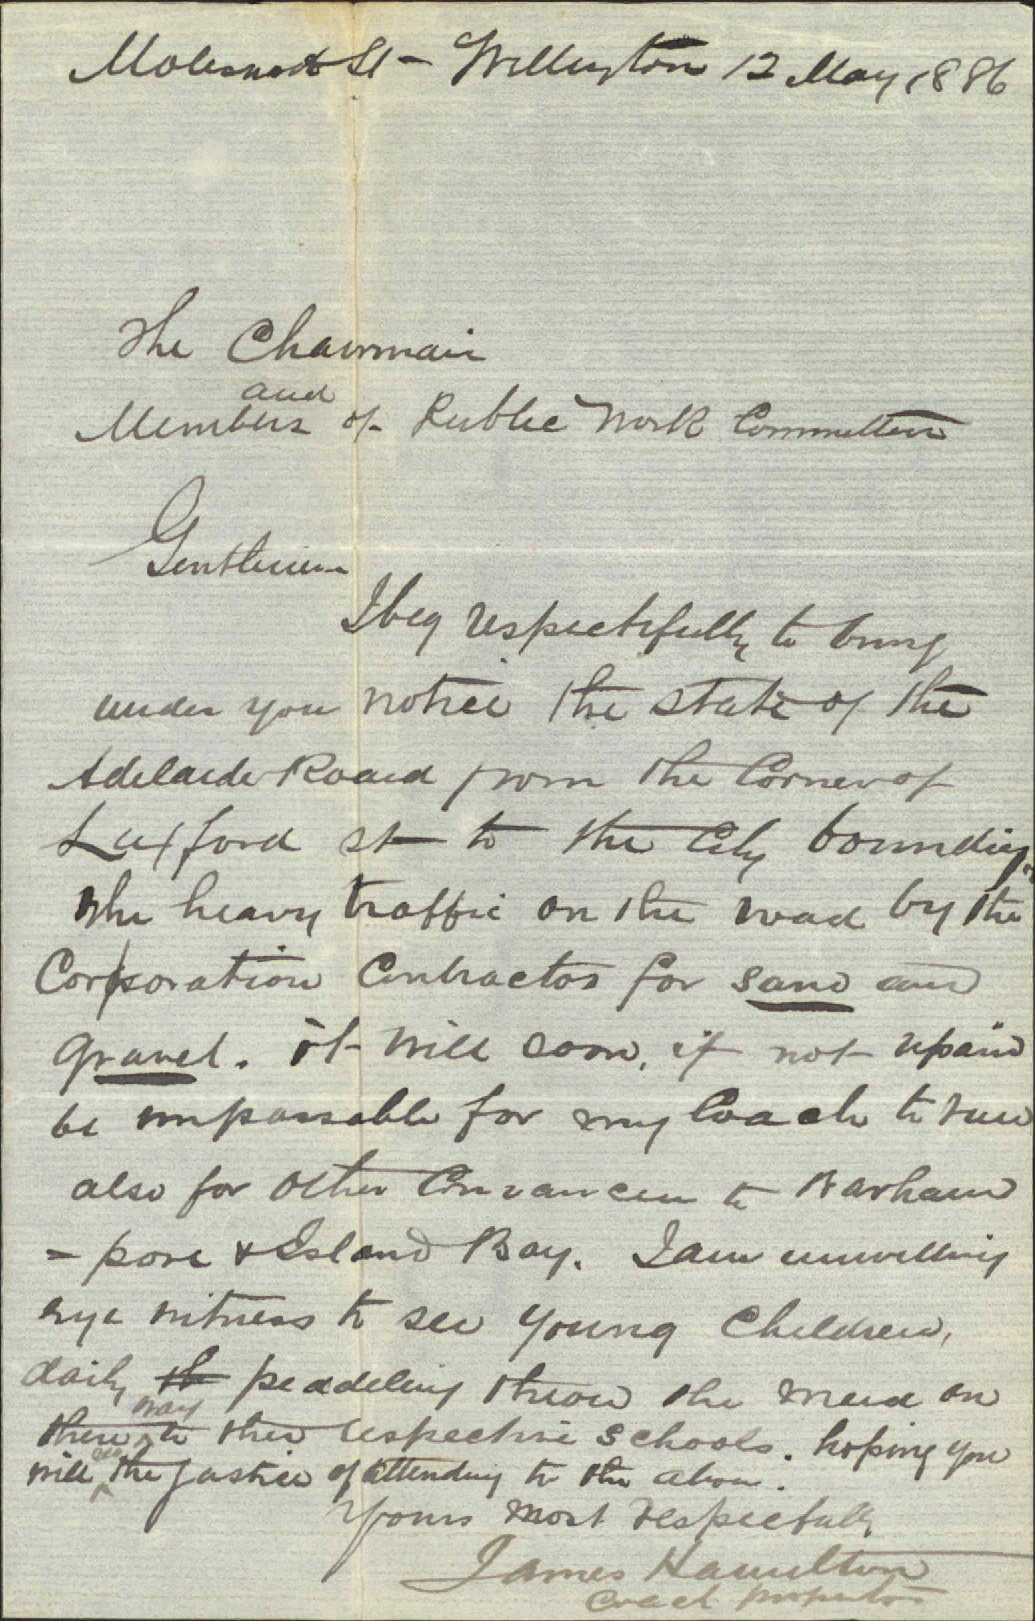 Molesworth St - Wellington 12 May 1886
The Chairman
and
Members of Public Work Committee
Gentlemen
I beg respectifully to bring
under you notice the state of the
Adelaide Roard from the Corner of
Luxford st to the City boundry.
The heavy traffic on the road by the
Corporation Contractor for sand and
gravel. it will soon, if not repaird
be impassable for my Coach to run
also for other Convancen to Barham
= pore & Island Bay. I am unwilling
eye witness to see young Children,
daily th peaddeling throw the mud on
way
there to their respective schools. hoping you
will the justice of attending to the above.
Yours most respectfully
James Hamilton
Coach proprietor